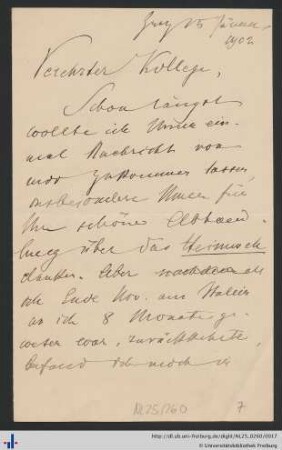 Graz 15 Jänner
1902
Verehrter Kollege,
Schon längst
wollte ich Ihnen ein-
mal Nachricht von
mir zukommen lassen,
insbesondere Ihnen für
Ihre schöne Abhand-
lung über das
danken. Aber nachdem
ich Ende Nov. aus Italien
wo ich 8 Monate ge-
wesen war, zurückkehrte,
befand ich mich in
NL25/260
7
http://dl.ub.uni-freiburg.de/diglit/NL25_0260/0017
© Universitätsbibliothek Freiburg